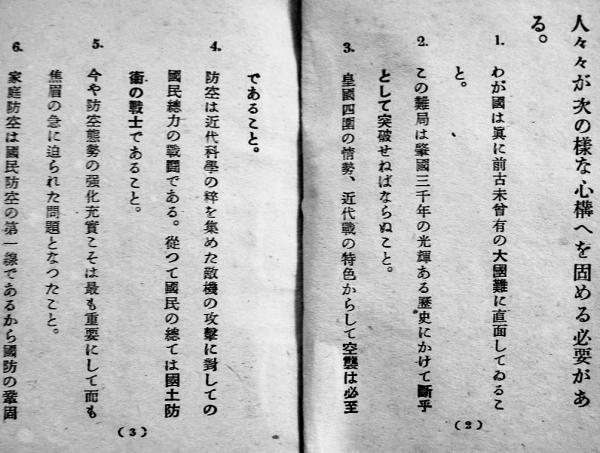 人々々が次の樣な心構へを固める必要があ
る。
1. わが國は眞に前古未曾有の大國難に直面してゐるこ
と。
2. この難局は肇國三千年の光輝ある歷史にかけて斷乎
として突破せねばならぬこと。
3. 皇國四圍の情勢、近代戰の特色からして空襲は必至
(2)
であること。
4. 防空は近代科學の粹を集めた敵機の攻擊に對しての
國民總力の戰鬪である。從つて國民の總ては國土防
衞の戰士であること。
5. 今や防空態勢の强化充實こそは最も重要にして而も
焦眉の急に迫られた問題となつたこと。
6. 家庭防空は國民防空の第一線であるから國防の鞏固
(3)